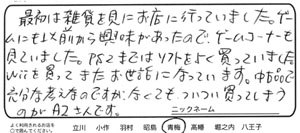 最初は雑貨を見にお店に行っていました。ゲー
ムにも以前から興味があったので、ゲームコーナーも
見ていました。PS2まではソフトをよく買っていました。
Wiiを買ってまたお世話になっています。中古品で
充分な考えなのですが、なくてもついつい買ってしまう
のがA2さんです。
ニックネーム
よく利用されるお店を
○で囲んでください。
立川 小作 羽村 昭島 青梅 高幡 堀之内 八王子